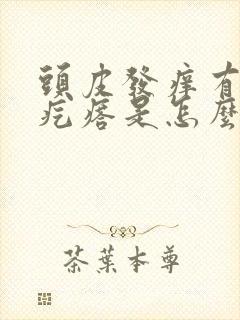 頭皮發癢有
疙瘩是怎麼
茶葉本尊